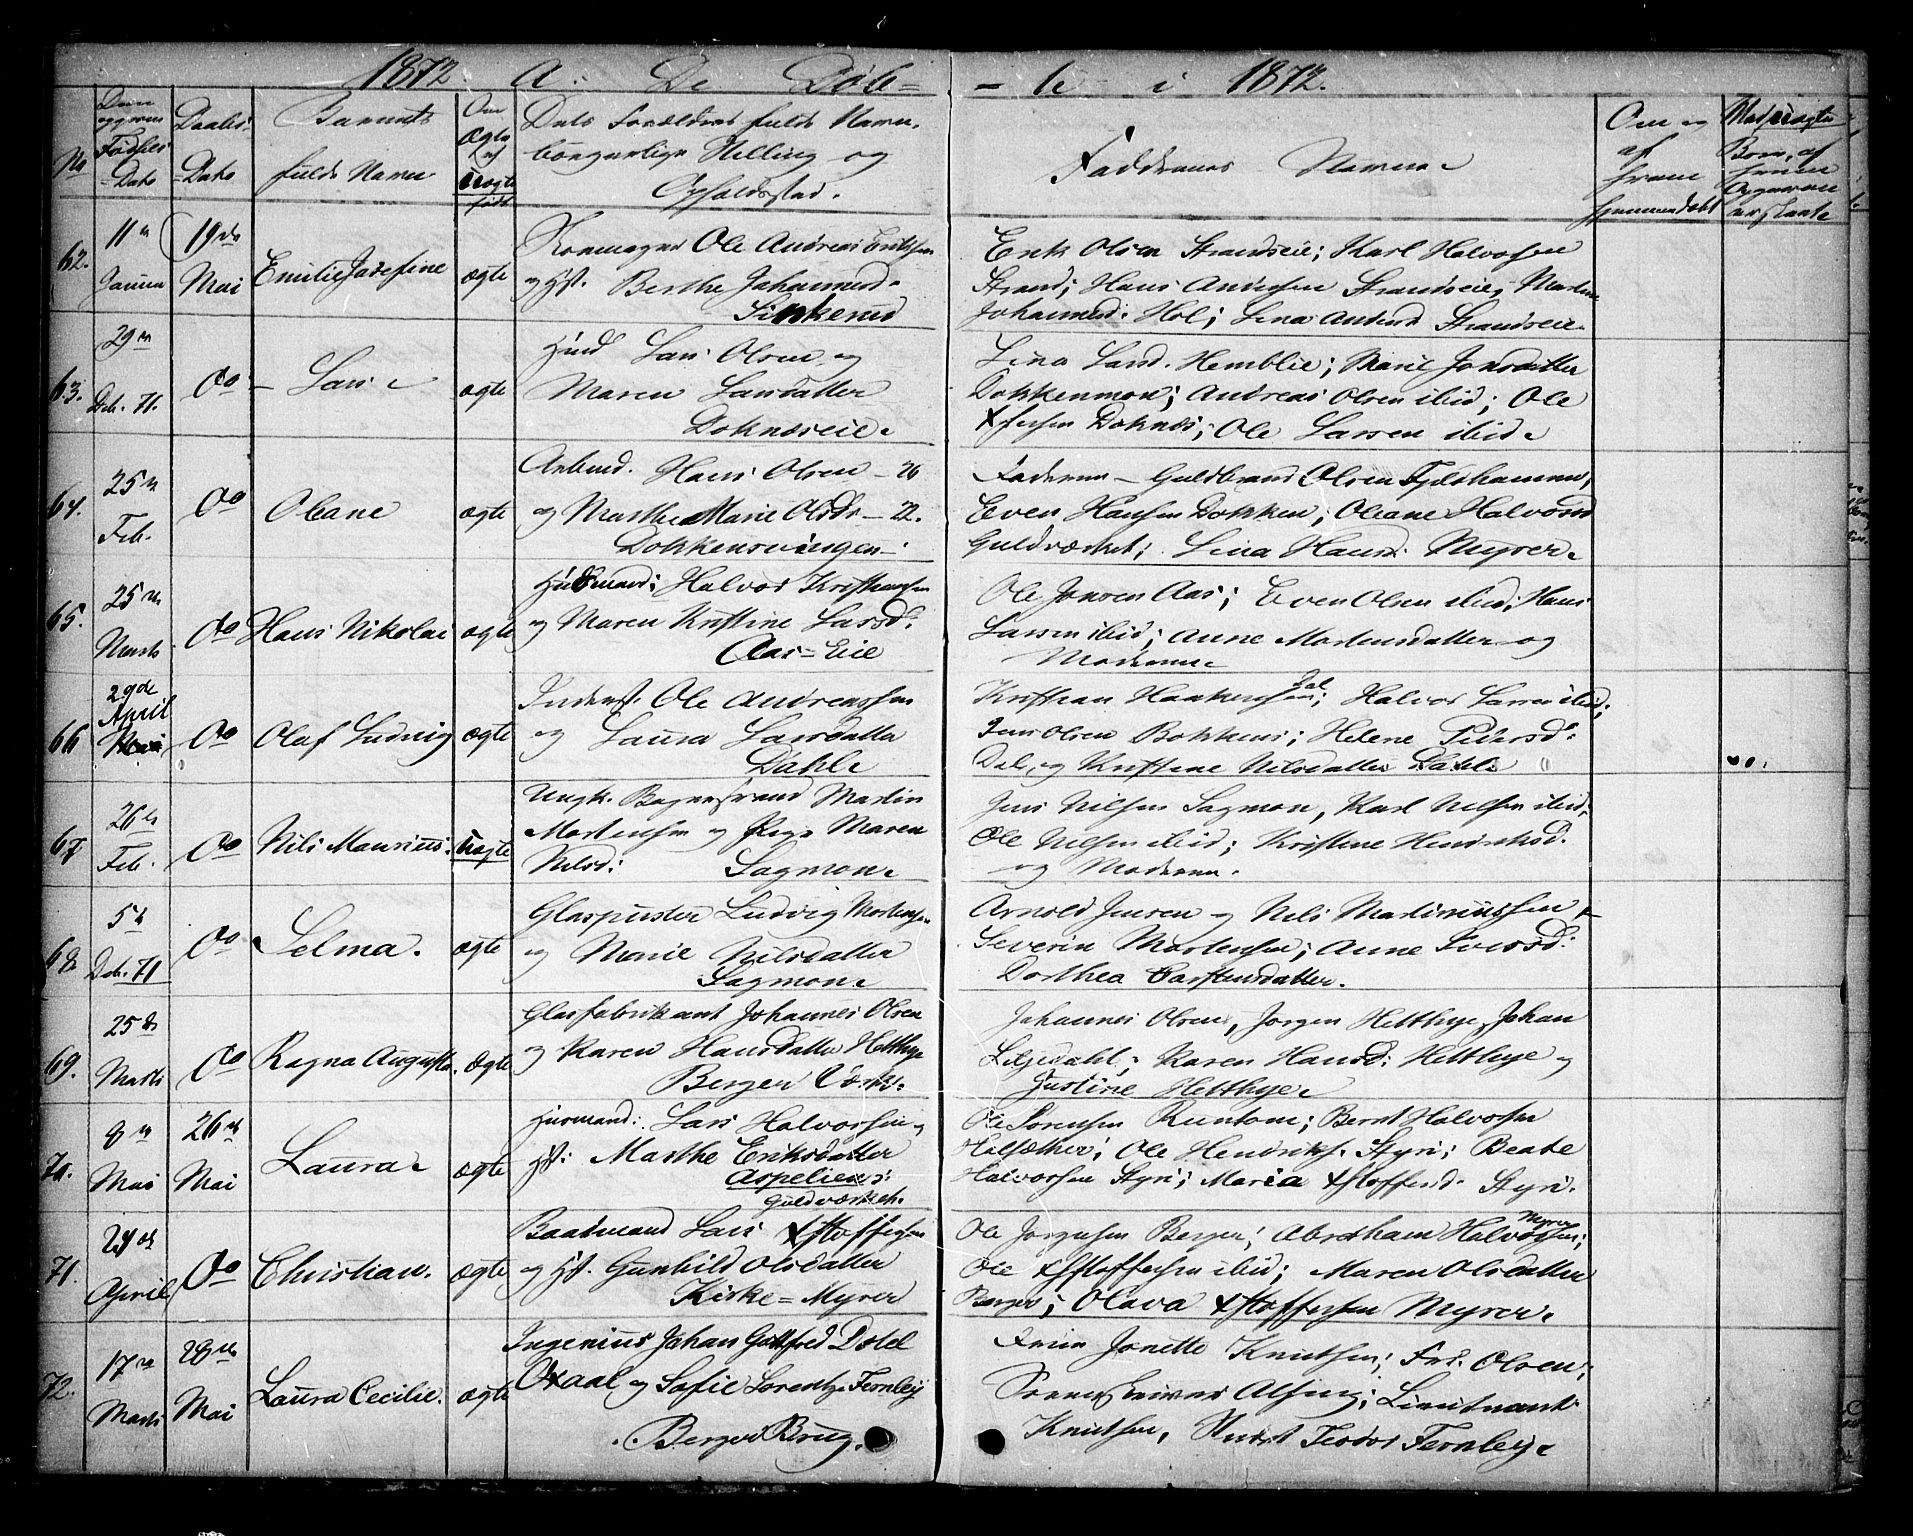 1872 A. De Døb= - te i 1872.
No
Fødsels Dato
Daabs= Dato
Barnets fulde Navn
ægte uægte født
Dets Forældres fulde Navn, borgerlige Stilling og Opholdssted.
Faddernes Navne
Om og af hvem hjemmedøbt
62.
11te Januar
19de Mai
Emilie Josefine
ægte
Ole Andreas Eriksen
og Hst. Berthe Johannesd.
Sinkerud
Erik Olsen Strandseie; Karl Halvorsen
Strand; Hans Andersen Strandseie, Marthe
Johannesd. Hol; Lina Andersd Strandseie
63.
29de Deb. 71.
Do
Lars
ægte
Husd Lars Olsen og
Maren Larsdatter
Doknæseie.
Lina Larsd. Hemblie; Marie Jonsdatter
Dokkenmoen; Andreas Olsen ibid; Ole
Doknæs; Ole Larsen ibid.
64.
25de Feb.
Do
Oleane
ægte
Arbmd. Hans Olsen - 26
og Marthe Marie Olsdr - 22.
Dokkensvingen
Faderen - Guldbrand Olsen Fjeldhammer,
Even Hansen Dokken; Oleane Halvorsd
Guldværket; Lina Hansd. Myrer.
65.
25de Marts
Do
Hans Nikolai
ægte
Husmand; Halvor Kristiansen
og Maren Kristine Larsd.
Aas=Eie
Ole Jonsen Aas; Even Olsen ibid; Hans
Larsen ibid; Anne Mortensdatter og
Moderen
66
29de April
Do
Olaf Ludvig
ægte
Inderst. Ole Andreassen
og Laura Larsdatter
Dahl.
Kristian Haakensen Dal; Halvor Larsen ibid;
Jens Olsen Bokkens; Helene Pedersd.
Dal, og Kristine Nilsdatter Dahl.
67
26de Feb.
Do
Nils Maurius.
uægte
Ungk. Martin
Mortensen og Pige Maren
Nilsd: Sagmoen.
Jens Nilsen Sagmoen, Karl Nilsen ibid,
Ole Nilsen ibid; Kristine Henriksd.
og Moderen.
68
5te Deb. 71
Do
Selma.
ægte
Glaspuster Ludvig Mortensen
og Marie Nilsdatter
Sagmoen
Arnold Jensen og Nils Martiniussen
Severin Mortensen; Anne Iversd:
Dorthea Carstensdatter.
69.
25de Marts
Do
Ragna Augusta.
Ægte
Glasfabrikant Johannes Olsen
og Karen Hansdatter Hetthye
Berger Værk.
Johannes Olsen, Jørgen Hetthye, Johan
Liljedahl; Karen Hansd: Hetthye og
Justine Hetthye
70.
8de Mai
26de Mai
Laura
ægte
Husmand: Lars Halvorsen og
Hst: Marthe Eriksdatter
Aspelien:
Guldværket.
Ole Sørensen Runtom; Bernt Halvorsen
Ole Henriks. Styri; Beate
Halvorsen Styri; Maria Xstoffersd. Styri.
71.
24de April
Do
Christian.
ægte
Baadsmand Lars Xstoffersen
og Hst. Gunhild Olsdatter
Kirke=Myrer
Ole Jørgensen Berger; Abraham Halvorsen Myrer;
Ole Xstoffersen ibid; Maren Olsdatter
Berger; Olava Xstoffersen Myrer.
72.
17de Marts
28de Mai
Laura Cecilie.
ægte
Ingeniør Johan Gottfred Dotel
Oxaal og Sofie Lorentze Fernley
Berger Brug.
Fruen Jonette Knutsen; Frk. Olsen;
Sorenskriver Alsing; Lieutnant
Knutsen, Studt Teodor Fernley